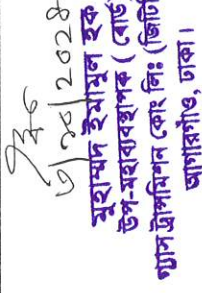 ৩/১০/2024
মুহাম্মদ ইমামুল হক
উপ-মহাব্যবস্থাপক ( বোর্ড
গ্যাস ট্রান্সমিশন কোং লিঃ (জিটি
আগারগাঁও, ঢাকা।